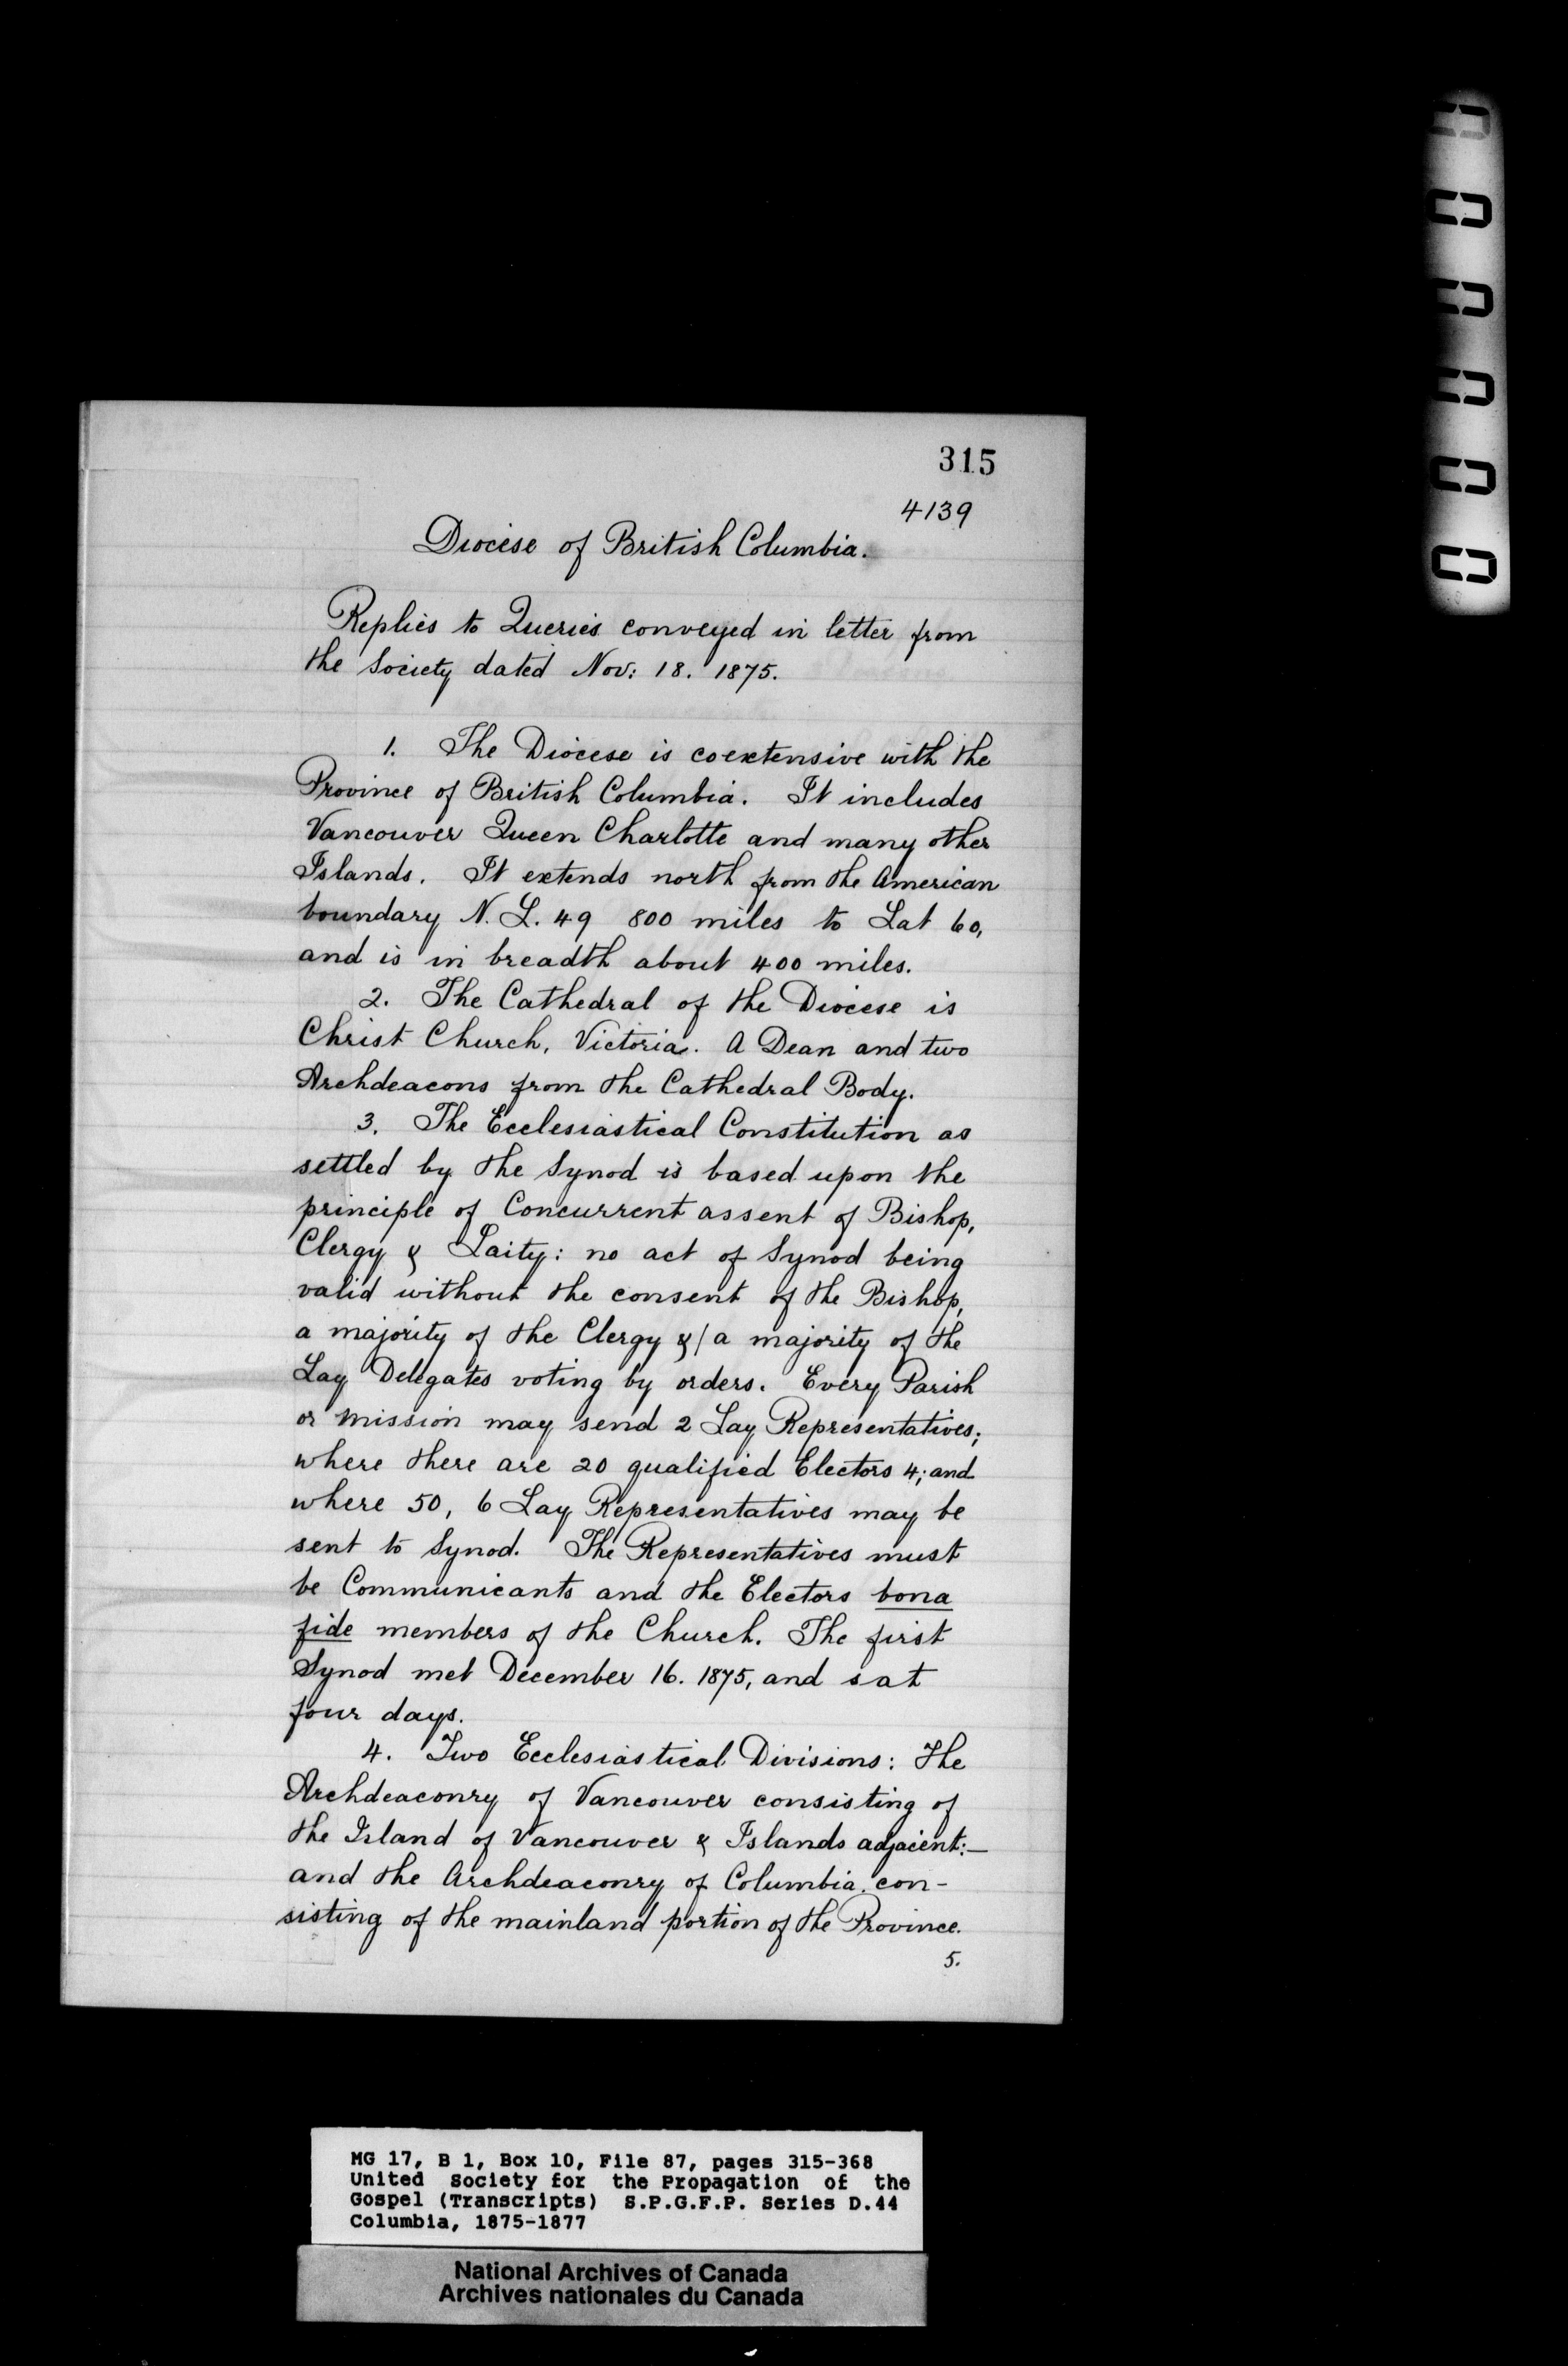 315
4139
Diocese of British Columbia.
Replies to Queries conveyed in letter from
the Society dated Nov: 18. 1875.
1. The Diocese is coextensive with the
Province of British Columbia. It includes
Vancouver Queen Charlotte and many other
Islands. It extends north from the American
boundary N. L. 49 800 miles to Lat 60,
and is in breadth about 400 miles.
2. The Cathedral of the Diocese is
Christ Church, Victoria. A Dean and two
Archdeacons from the Cathedral Body.
3. The Ecclesiastical Constitution as
settled by the Synod is based upon the
principle of Concurrent assent of Bishop,
Clergy & Laity: no act of Synod being
valid without the consent of the Bishop,
a majority of the Clergy &/a majority of the
Lay Delegates voting by orders. Every Parish
or Mission may send 2 Lay Representatives;
where there are 20 qualified Electors 4; and
where 50, 6 Lay Representatives may be
sent to Synod. The Representatives must
be Communicants and the Electors bona
fide members of the Church. The first
Synod met December 16. 1875, and sat
four days.
4. Two Ecclesiastical Divisions: The
Archdeaconry of Vancouver consisting of
the Island of Vancouver & Islands adjacent:—
and the Archdeaconry of Columbia. con-
sisting of the mainland portion of the Province.
5.
MG 17, B 1, Box 10, File 87, pages 315-368
United Society for the Propagation of the
Gospel (Transcripts) S.P.G.F.P. Series D.44
Columbia, 1875-1877
National Archives of Canada
Archives nationales du Canada